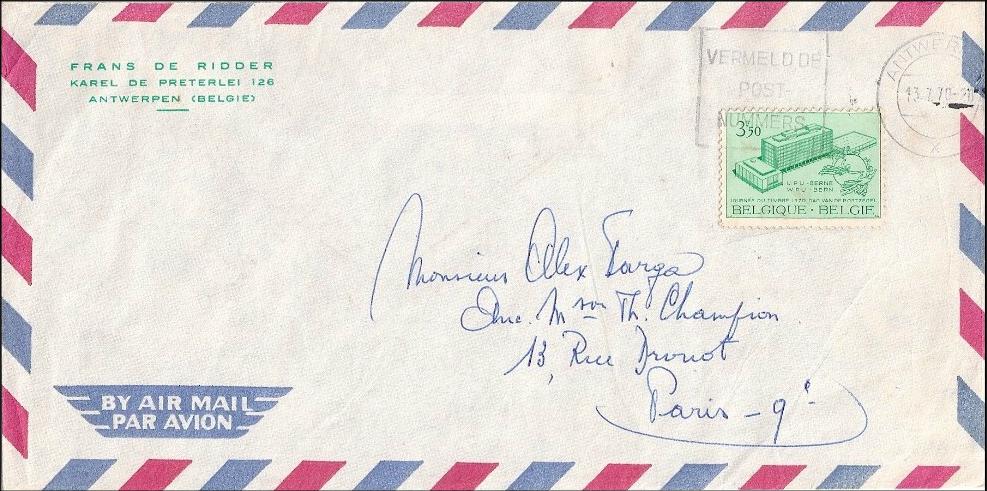 FRANS DE RIDDER
KAREL DE PRETERLEI 126
ANTWERPEN (BELGIE)
VERMELD DE
POST-
NUMMERS
ANTWER
13.7.70-20
3,50
U.P.U-BERNE
W.P.U-BERN
JOURNÉE DU TIMBRE 1970 DAG VAN DE POSTZEGEL
BELGIQUE·BELGIE
Monsieur Alex Targa
Anc. Mson Th. Champion
13, Rue Drouot
Paris - 9e
BY AIR MAIL
PAR AVION